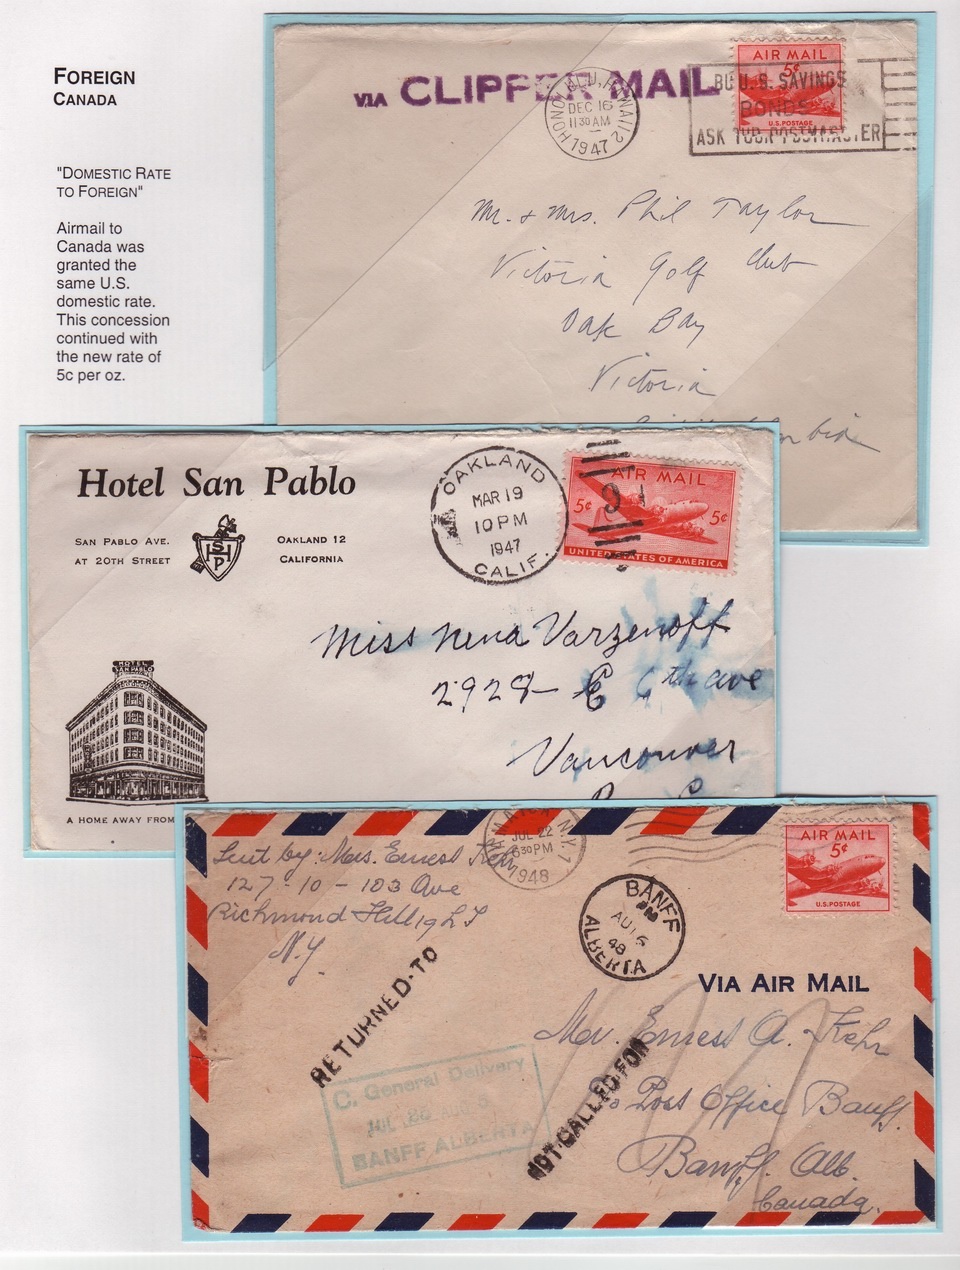 FOREIGN
CANADA
"DOMESTIC RATE
TO FOREIGN"
Airmail to
Canada was
granted the
same U.S.
domestic rate.
This concession
continued with
the new rate of
5c per oz.
VIA CLIPPER MAIL
HONOLULU, HAWAII 2
DEC 16
11 30 AM
1947
AIR MAIL
5¢
U.S. POSTAGE
BUY U.S. SAVINGS
BONDS
ASK YOUR POSTMASTER
Mr. & Mrs. Phil Taylor
Victoria Golf Club
Oak Bay
Victoria
Hotel San Pablo
SAN PABLO AVE.
AT 20TH STREET
HSP
OAKLAND 12
CALIFORNIA
OAKLAND
MAR 19
10 PM
1947
CALIF.
AIR MAIL
5¢ 5¢
UNITED STATES OF AMERICA
Miss Nina Varzenoff
2928 E 6th ave
Vancouver
HOTEL
SAN PABLO
A HOME AWAY FROM
Sent by: Mrs. Ernest Kehr
127-10-103 Ave
Richmond Hill
N.Y.
JUL 22
630 PM
1948
BANFF
PM
AU 6
48
ALBERTA
AIR MAIL
5¢
U.S. POSTAGE
VIA AIR MAIL
RETURNED TO
Mr. Ernest A. Kehr
Post Office Banff
Banff. Alb.
Canada.
C. General Delivery
BANFF ALBERTA
NOT CALLED FOR